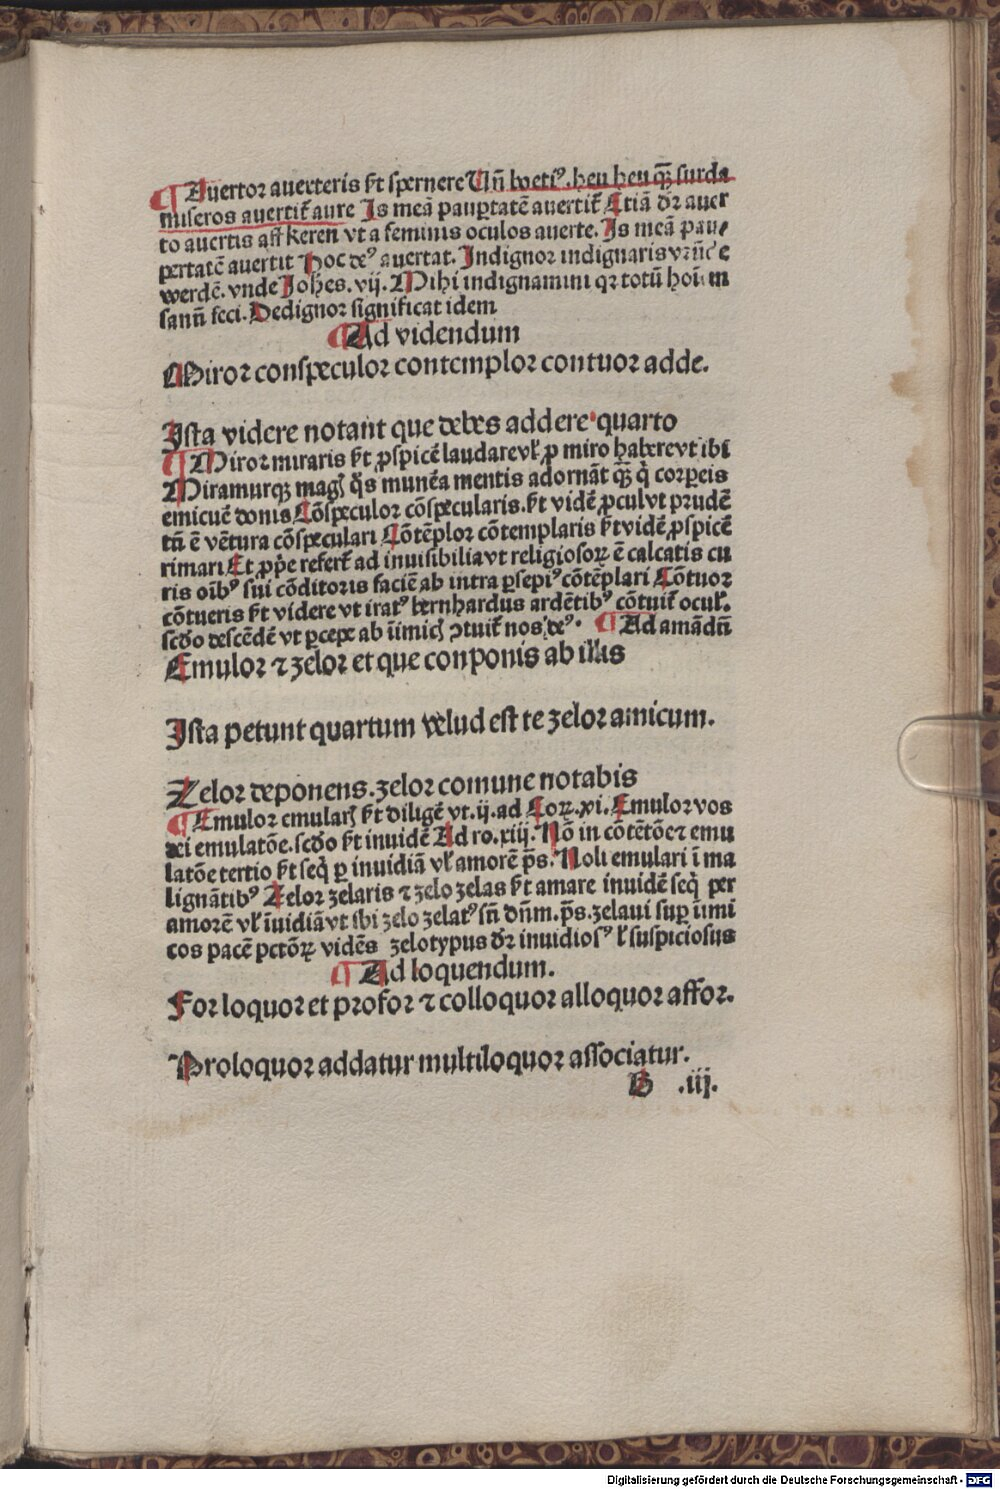 ¶ Auertor auerteris s̄t spernere Vn̄ boeti⁹. heu heu qͣ̄ surda
miseros auertit̄ aure Is meā paup̱tatē auertit̄ Etiā dr̄ auer
to auertis aff keren vt a feminis oculos auerte. Is meā pau⸗
pertatē auertit Hoc de⁹ auertat. Indignor indignaris vrn̄c e
werdē. vnde Johēs. vij. Mihi indignamini qꝛ totū hoīem
sanū feci. Dedignor significat idem
¶ Ad videndum
Miror conspeculor contemplor contuor adde.
Ista videre notant que debes addere quarto
¶ Miror miraris s̄t ꝓspicē laudare vl̄ ꝓ miro habere vt ibi
Miramurqꝫ magꝭ q̄s munēa mentis adornāt qͣ̄ q̇ corpeis
emicuē donis Cōspeculor cōspecularis. s̄t vidē ꝓcul vt prudē
tū ē vētura cōspeculari Cōtēplor cōtemplaris s̄t vidē ꝓspicē
rimari Et ꝓp̄e refert̄ ad inuisibilia vt religiosoꝝ ē calcatis cu
ris oīb⁹ sui cōditoris faciē ab intra p̱sepi⁹ cōtēplari Cōtuor
cōtueris s̄t videre vt irat⁹ bernhardus ardētib⁹ cōtuit̄ ocul̄.
scd̄o descēdē vt p̱cepe ab īimicꝭ ꝯtuit̄ nos de⁹. ¶ Ad amādū
Emulor ⁊ zelor et que conponis ab illis
Ista petunt quartum velud est te zelor amicum.
Zelor deponens. zelor comune notabis
¶ Emulor emularꝭ s̄t diligē vt. ij. ad Corꝝ. xi. Emulor vos
dei emulatōe. scd̄o s̄t inuidē Ad ro. xiij. Nō in cōtētōe ⁊ emu
latōe tertio s̄t seq̇ p̱ inuidiā vl̄ amorē p̄s. Noli emulari ī ma
lignātib⁹ Zelor zelaris ⁊ zelo zelas s̄t amare inuidē seq̇ per
amorē vl̄ īuidiā vt ibi zelo zelat⁹ sū dn̄m. p̄s. zelaui sup̱ īimi
cos pacē pctōꝝ vidēs zelotypus dr̄ inuidios⁹ l̄ suspiciosus
¶ Ad loquendum.
For loquor et profor ⁊ colloquor alloquor affor.
Proloquor addatur multiloquor associatur.
B .iij.
Digitalisierung gefördert durch die Deutsche Forschungsgemeinschaft - DFG